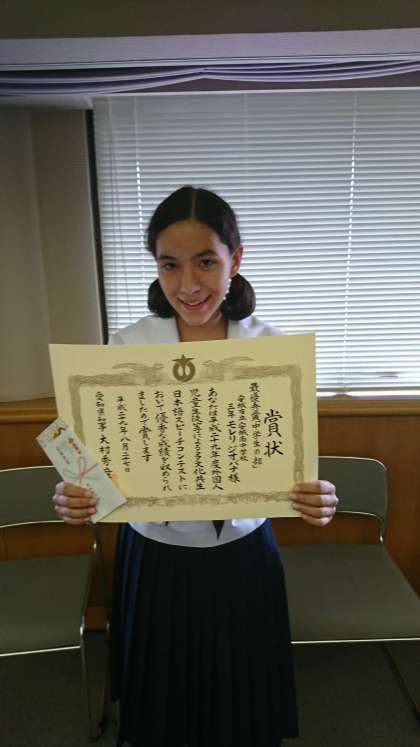 賞状
最優秀賞(中学生の部)
安城市立安城南中学校
三年 モレリ ジオハナ 様
あなたは平成二十九年度外国人
児童生徒等による多文化共生
日本語スピーチコンテストに
おいて優秀な成績を収められ
ましたので賞します
平成二十九年八月二十七日
愛知県知事 大村秀